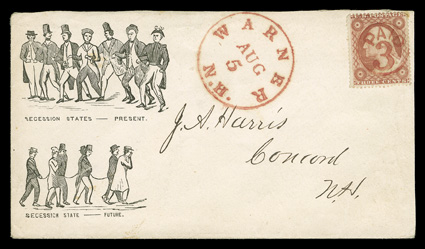 WARNER N.H.
AUG
5
PAID
3
SECESSION STATES — PRESENT.
J. A. Harris
Concord
N.H.
SECESSION STATE — FUTURE.